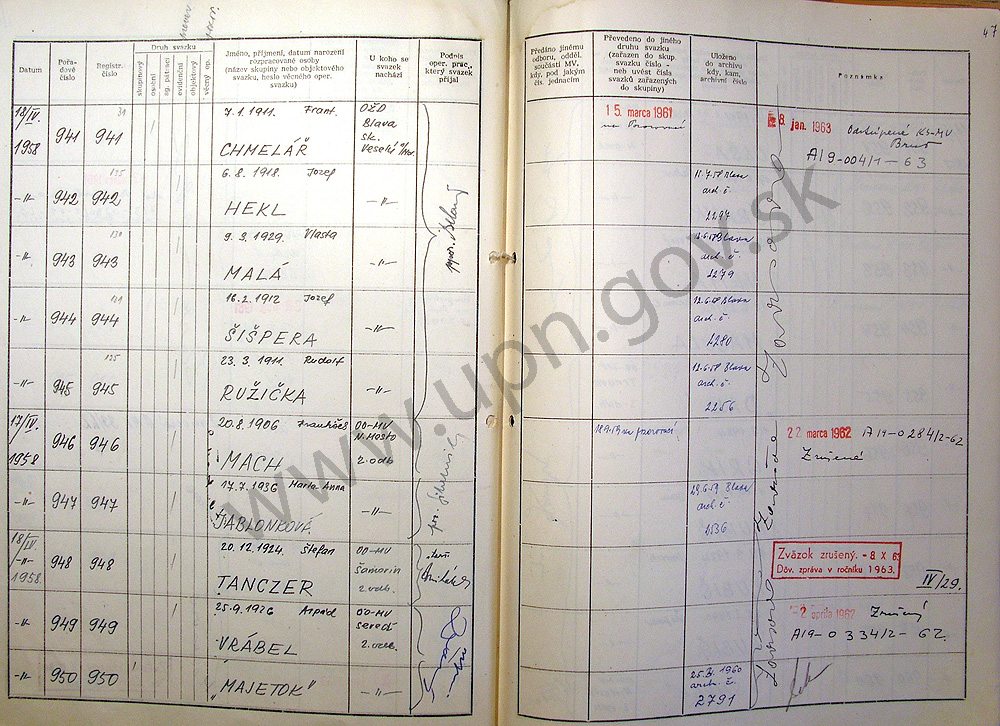 47
Datum
Pořadové číslo
Registr. číslo
Druh svazku
skupinový
osobní
ag. pátrací
evidenční
objektový
věcný op.
Jméno, příjmení, datum narození rozpracované osoby (název skupiny nebo objektového svazku, heslo věcného oper. svazku)
U koho se svazek nachází
Podpis oper. prac., který svazek přijal
Předáno jinému odboru, odděl. součásti MV, kdy, pod jakým čís. jednacím
Převedeno do jiného druhu svazku (zařazen do skup. svazku číslo - neb uvést čísla svazků zařazených do skupiny)
Uloženo do archivu kdy, kam, archivní číslo
Poznamka
18/IV. 1958 941 941 7.1.1911. Frant. CHMELÁŘ
OŽD Blava sk. Veselí
15. marca 1961
8. jan. 1963
Odstúpené KS-MV
A19-004/1-63
-"- 942 942 6.8.1918. Jozef HEKL -"-
arch. č. 2297
-"- 943 943 9.3.1929. Vlasta MALÁ -"-
Blava arch. č. 2279
-"- 944 944 16.2.1912 Jozef ŠIŠPERA -"-
12.6.58 Blava arch. č. 2280
-"- 945 945 23.3.1911. Rudolf RUŽIČKA -"-
12.6.58 Blava arch. č. 2256
17/IV. 1958 946 946 20.8.1906 MACH
OO-MV N.Mesto 2.odb
22 marca 1962 A19-0284/2-62
Zrušené
-"- 947 947 17.7.1936 Marta Anna JABLONKOVÉ -"-
Blava arch. č.
18/IV. -"- 1958. 948 948 20.12.1924. Štefan TANCZER
OO-MV Šamorín 2.odb.
Zväzok zrušený. - 8 X 63
Dôv. zpráva v ročníku 1963.
IV/29.
-"- 949 949 25.9.1926 Arpád VRÁBEL
OO-MV Sereď 2.odb.
2 apríla 1962 Zrušený
A19-0334/2-62.
-"- 950 950 "MAJETOK" -"-
1960 arch. č. 2791
www.upn.gov.sk